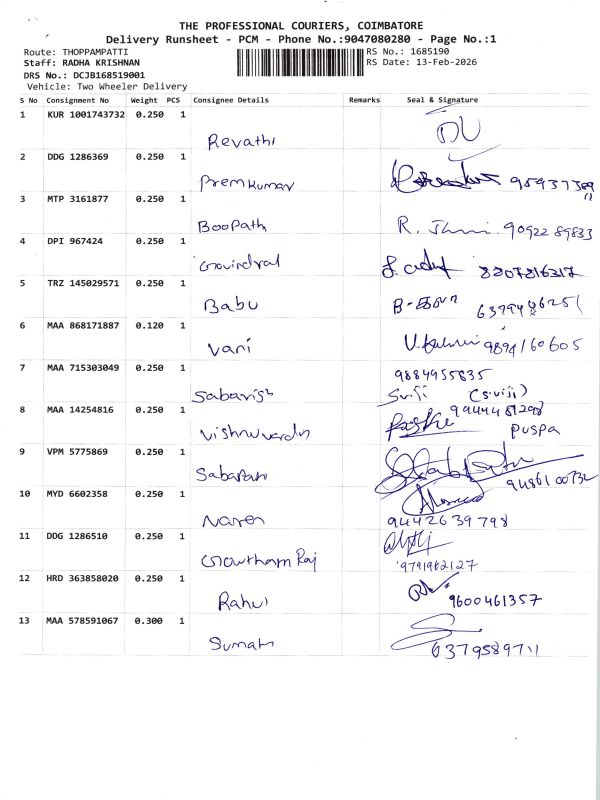 THE PROFESSIONAL COURIERS, COIMBATORE
Delivery Runsheet - PCM - Phone No.:9047080280 - Page No.:1
Route: THOPPAMPATTI RS No.: 1685190
Staff: RADHA KRISHNAN RS Date: 13-Feb-2026
DRS No.: DCJB168519001
Vehicle: Two Wheeler Delivery
S No Consignment No Weight PCS Consignee Details Remarks Seal & Signature
1 KUR 1001743732 0.250 1
Revathi
2 DDG 1286369 0.250 1
Premkumar
3 MTP 3161877 0.250 1
Boopath R. 9092289833
4 DPI 967424 0.250 1
Govindraj 8807816217
5 TRZ 145029571 0.250 1
Babu
6 MAA 868171887 0.120 1
Vani 9894160605
7 MAA 715303049 0.250 1 9884955835
Sabarish Sviji (S.viji)
8 MAA 14254816 0.250 1
Vishnuvardn puspa
9 VPM 5775869 0.250 1
Sabapath
10 MYD 6602358 0.250 1
Naren 9442639798
11 DDG 1286510 0.250 1
Gowtham Raj 9791962127
12 HRD 363858020 0.250 1
Rahul 9600461357
13 MAA 578591067 0.300 1
Sumath 6379589711